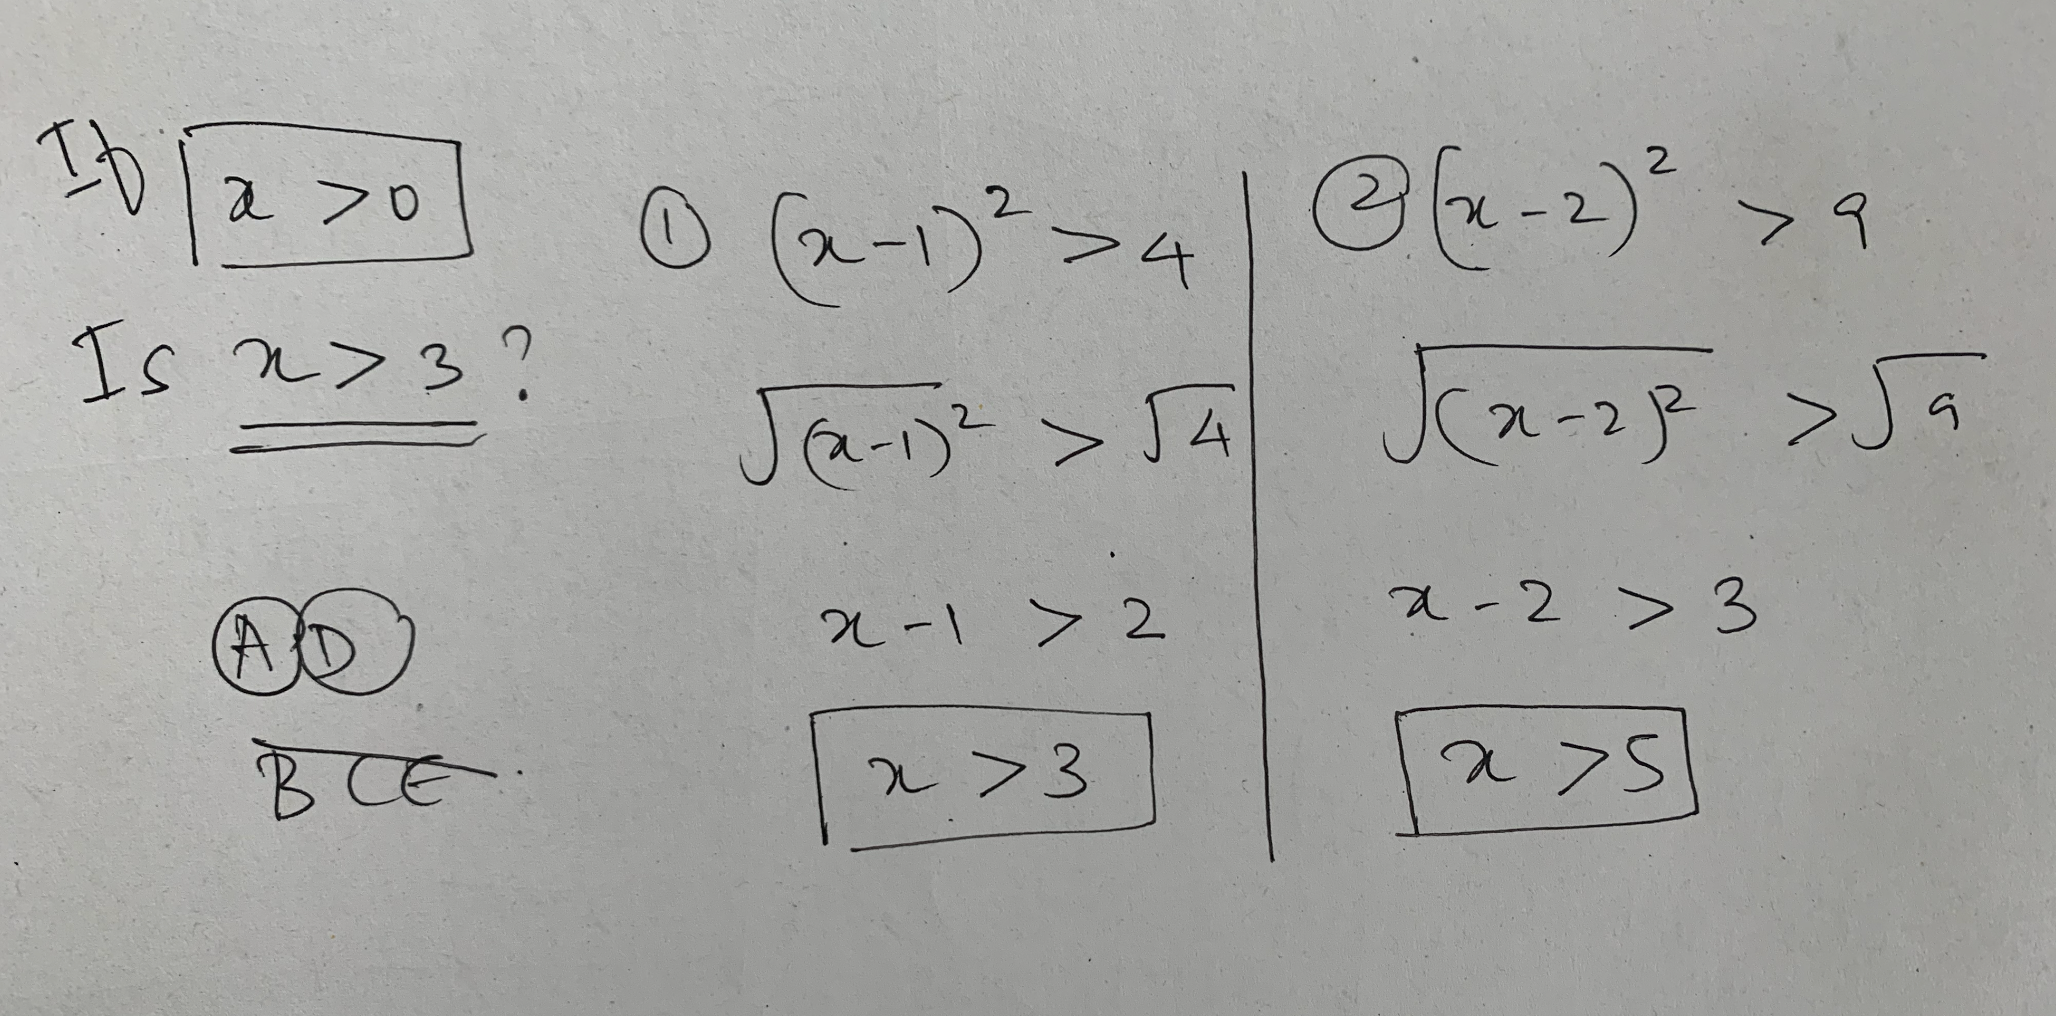 If x > 0
Is x > 3 ?
A D
B C E
① (x-1)² > 4
√(x-1)² > √4
x - 1 > 2
x > 3
② (x-2)² > 9
√(x-2)² > √9
x - 2 > 3
x > 5